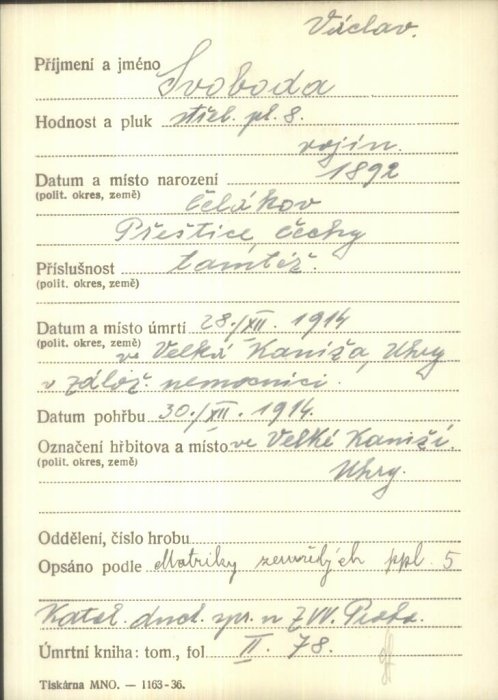 Václav.
Příjmení a jméno Svoboda
Hodnost a pluk střel. pl. 8.
vojín.
Datum a místo narození 1892
(polit. okres, země) Čelákov
Přeštice, Čechy
Příslušnost tamtéž.
(polit. okres, země)
Datum a místo úmrtí 28./XII. 1914
(polit. okres, země) ve Velká Kaniža, Uhry
v zálož. nemocnici.
Datum pohřbu 30./XII. 1914.
Označení hřbitova a místo ve Velké Kaniži.
(polit. okres, země) Uhry.
Oddělení, číslo hrobu
Opsáno podle Matriky zemřelých ppl. 5
Katol. duch. spr. u ZVV. Praha.
Úmrtní kniha: tom., fol II. 78.
Tiskárna MNO. — 1163-36.